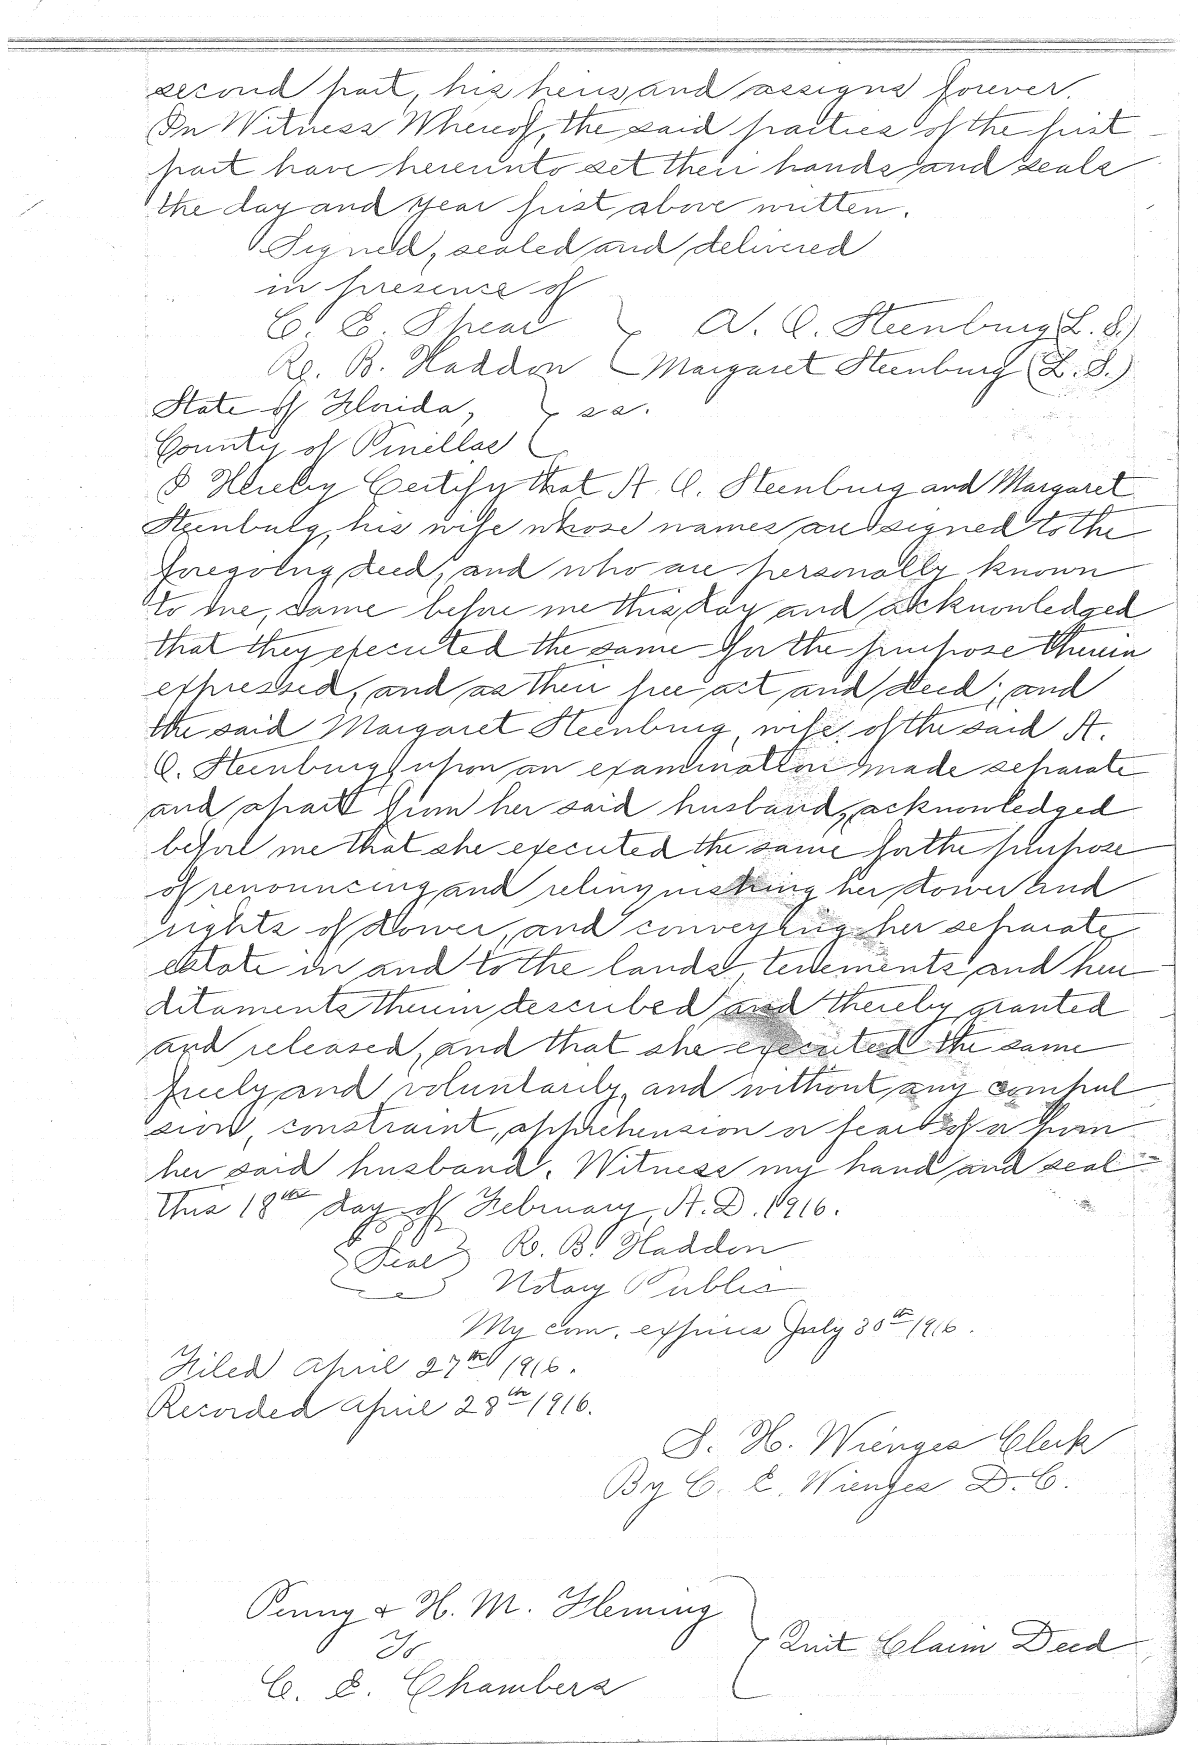 second part, his heirs and assigns forever.
In Witness Whereof, the said parties of the first
part have hereunto set their hands and seals
the day and year first above written.
Signed, sealed and delivered
in presence of
C. E. Spear } A. O. Steenburg (L. S.)
R. B. Haddon { Margaret Steenburg (L. S.)
State of Florida, } ss.
County of Pinellas
I Hereby Certify that A. O. Steenburg and Margaret
Steenburg, his wife whose names are signed to the
foregoing deed, and who are personally known
to me, came before me this day and acknowledged
that they executed the same for the purpose therein
expressed, and as their free act and deed; and
the said Margaret Steenburg, wife of the said A.
O. Steenburg, upon an examination made separate
and apart from her said husband, acknowledged
before me that she executed the same for the purpose
of renouncing and relinquishing her dower and
rights of dower, and conveying her separate
estate in and to the lands, tenements and here
ditaments therein described and thereby granted
and released, and that she executed the same
freely and voluntarily, and without any compul
sion, constraint, apprehension or fear of or from
her said husband. Witness my hand and seal
this 18th day of February, A. D. 1916.
(Seal) R. B. Haddon
Notary Public
My com. expires July 30th 1916.
Filed April 27th 1916.
Recorded April 28th 1916.
J. H. Wienges Clerk
By C. E. Wienges D. C.
Penny & H. M. Fleming
To } Quit Claim Deed
C. E. Chambers